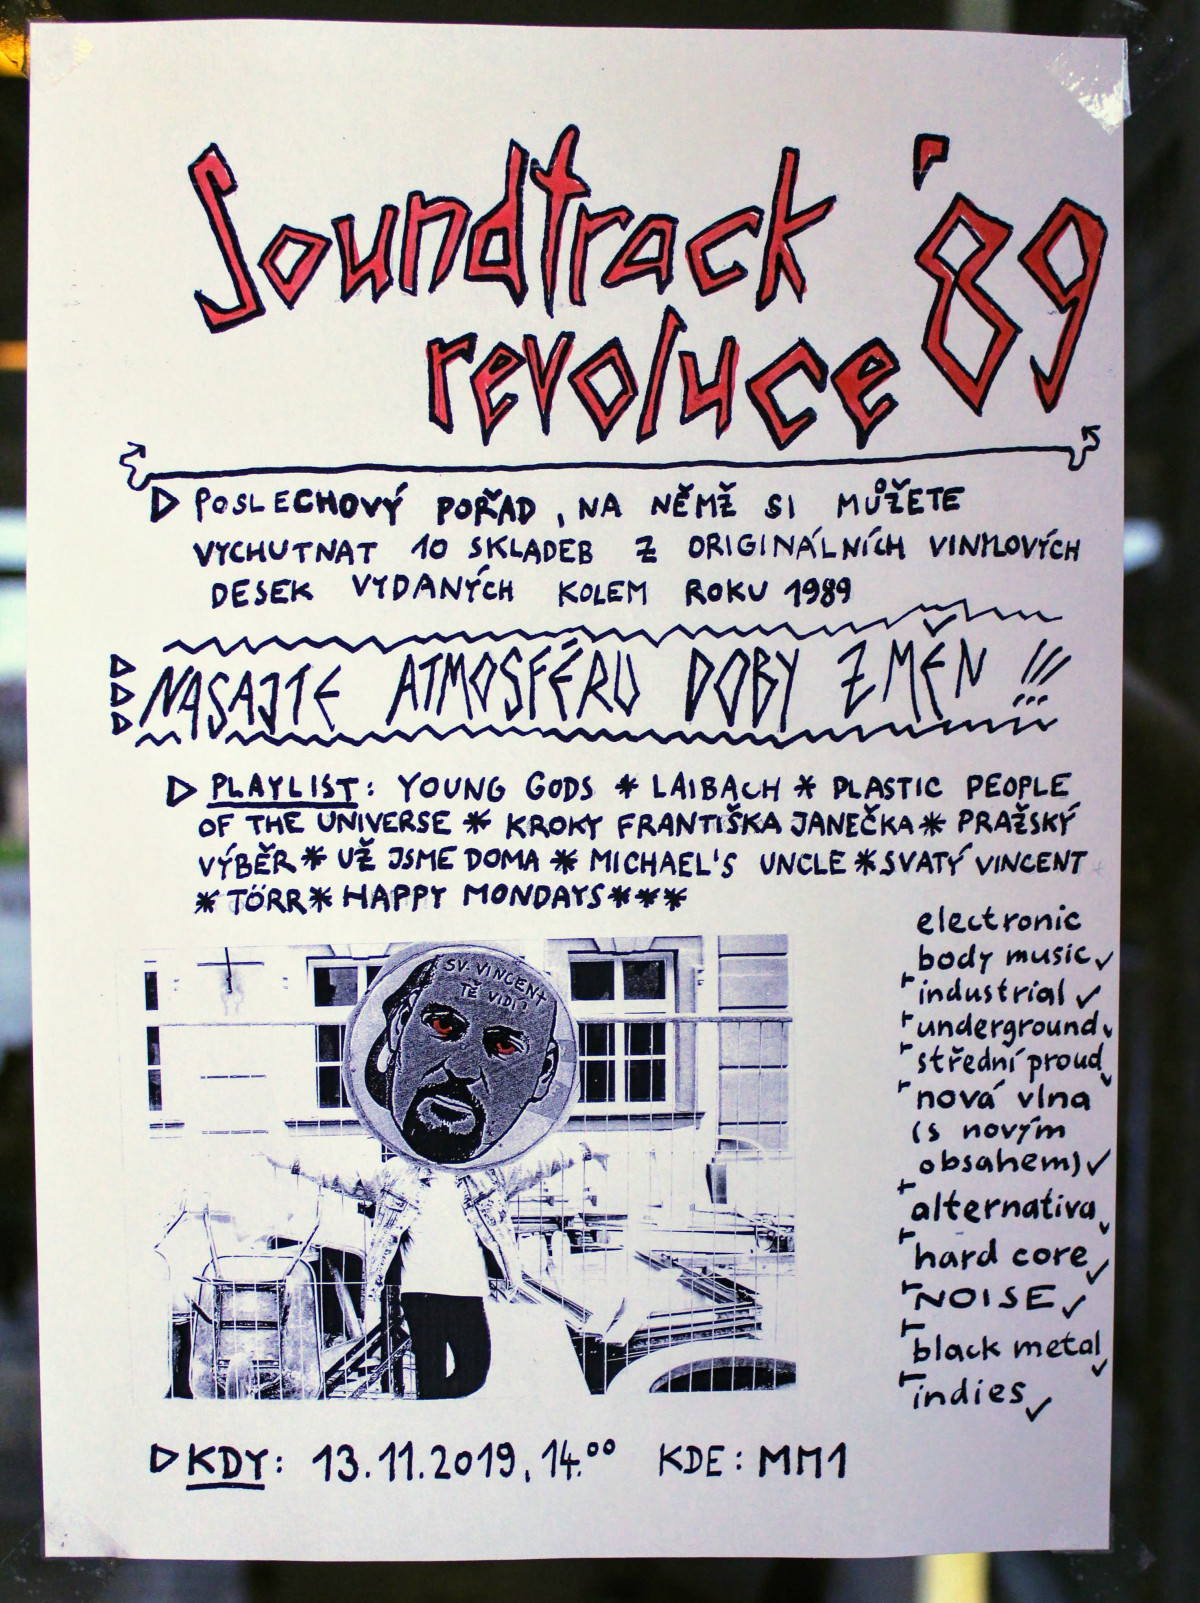 Soundtrack '89
revoluce
POSLECHOVÝ POŘAD, NA NĚMŽ SI MŮŽETE
VYCHUTNAT 10 SKLADEB Z ORIGINÁLNÍCH VINYLOVÝCH
DESEK VYDANÝCH KOLEM ROKU 1989
NASAJTE ATMOSFÉRU DOBY ZMĚN !!!
PLAYLIST: YOUNG GODS * LAIBACH * PLASTIC PEOPLE
OF THE UNIVERSE * KROKY FRANTIŠKA JANEČKA * PRAŽSKÝ
VÝBĚR * UŽ JSME DOMA * MICHAEL'S UNCLE * SVATÝ VINCENT
* TÖRR * HAPPY MONDAYS * * *
SV. VINCENT
TĚ VIDÍ?
electronic
body music ✓
industrial ✓
underground ✓
střední proud ✓
nová vlna
(s novým
obsahem) ✓
alternativa ✓
hard core ✓
NOISE ✓
black metal ✓
indies ✓
KDY: 13.11.2019, 14.00 KDE: MM1